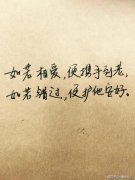 如若相爱，便携手到老，
如若错过，便护他安好。